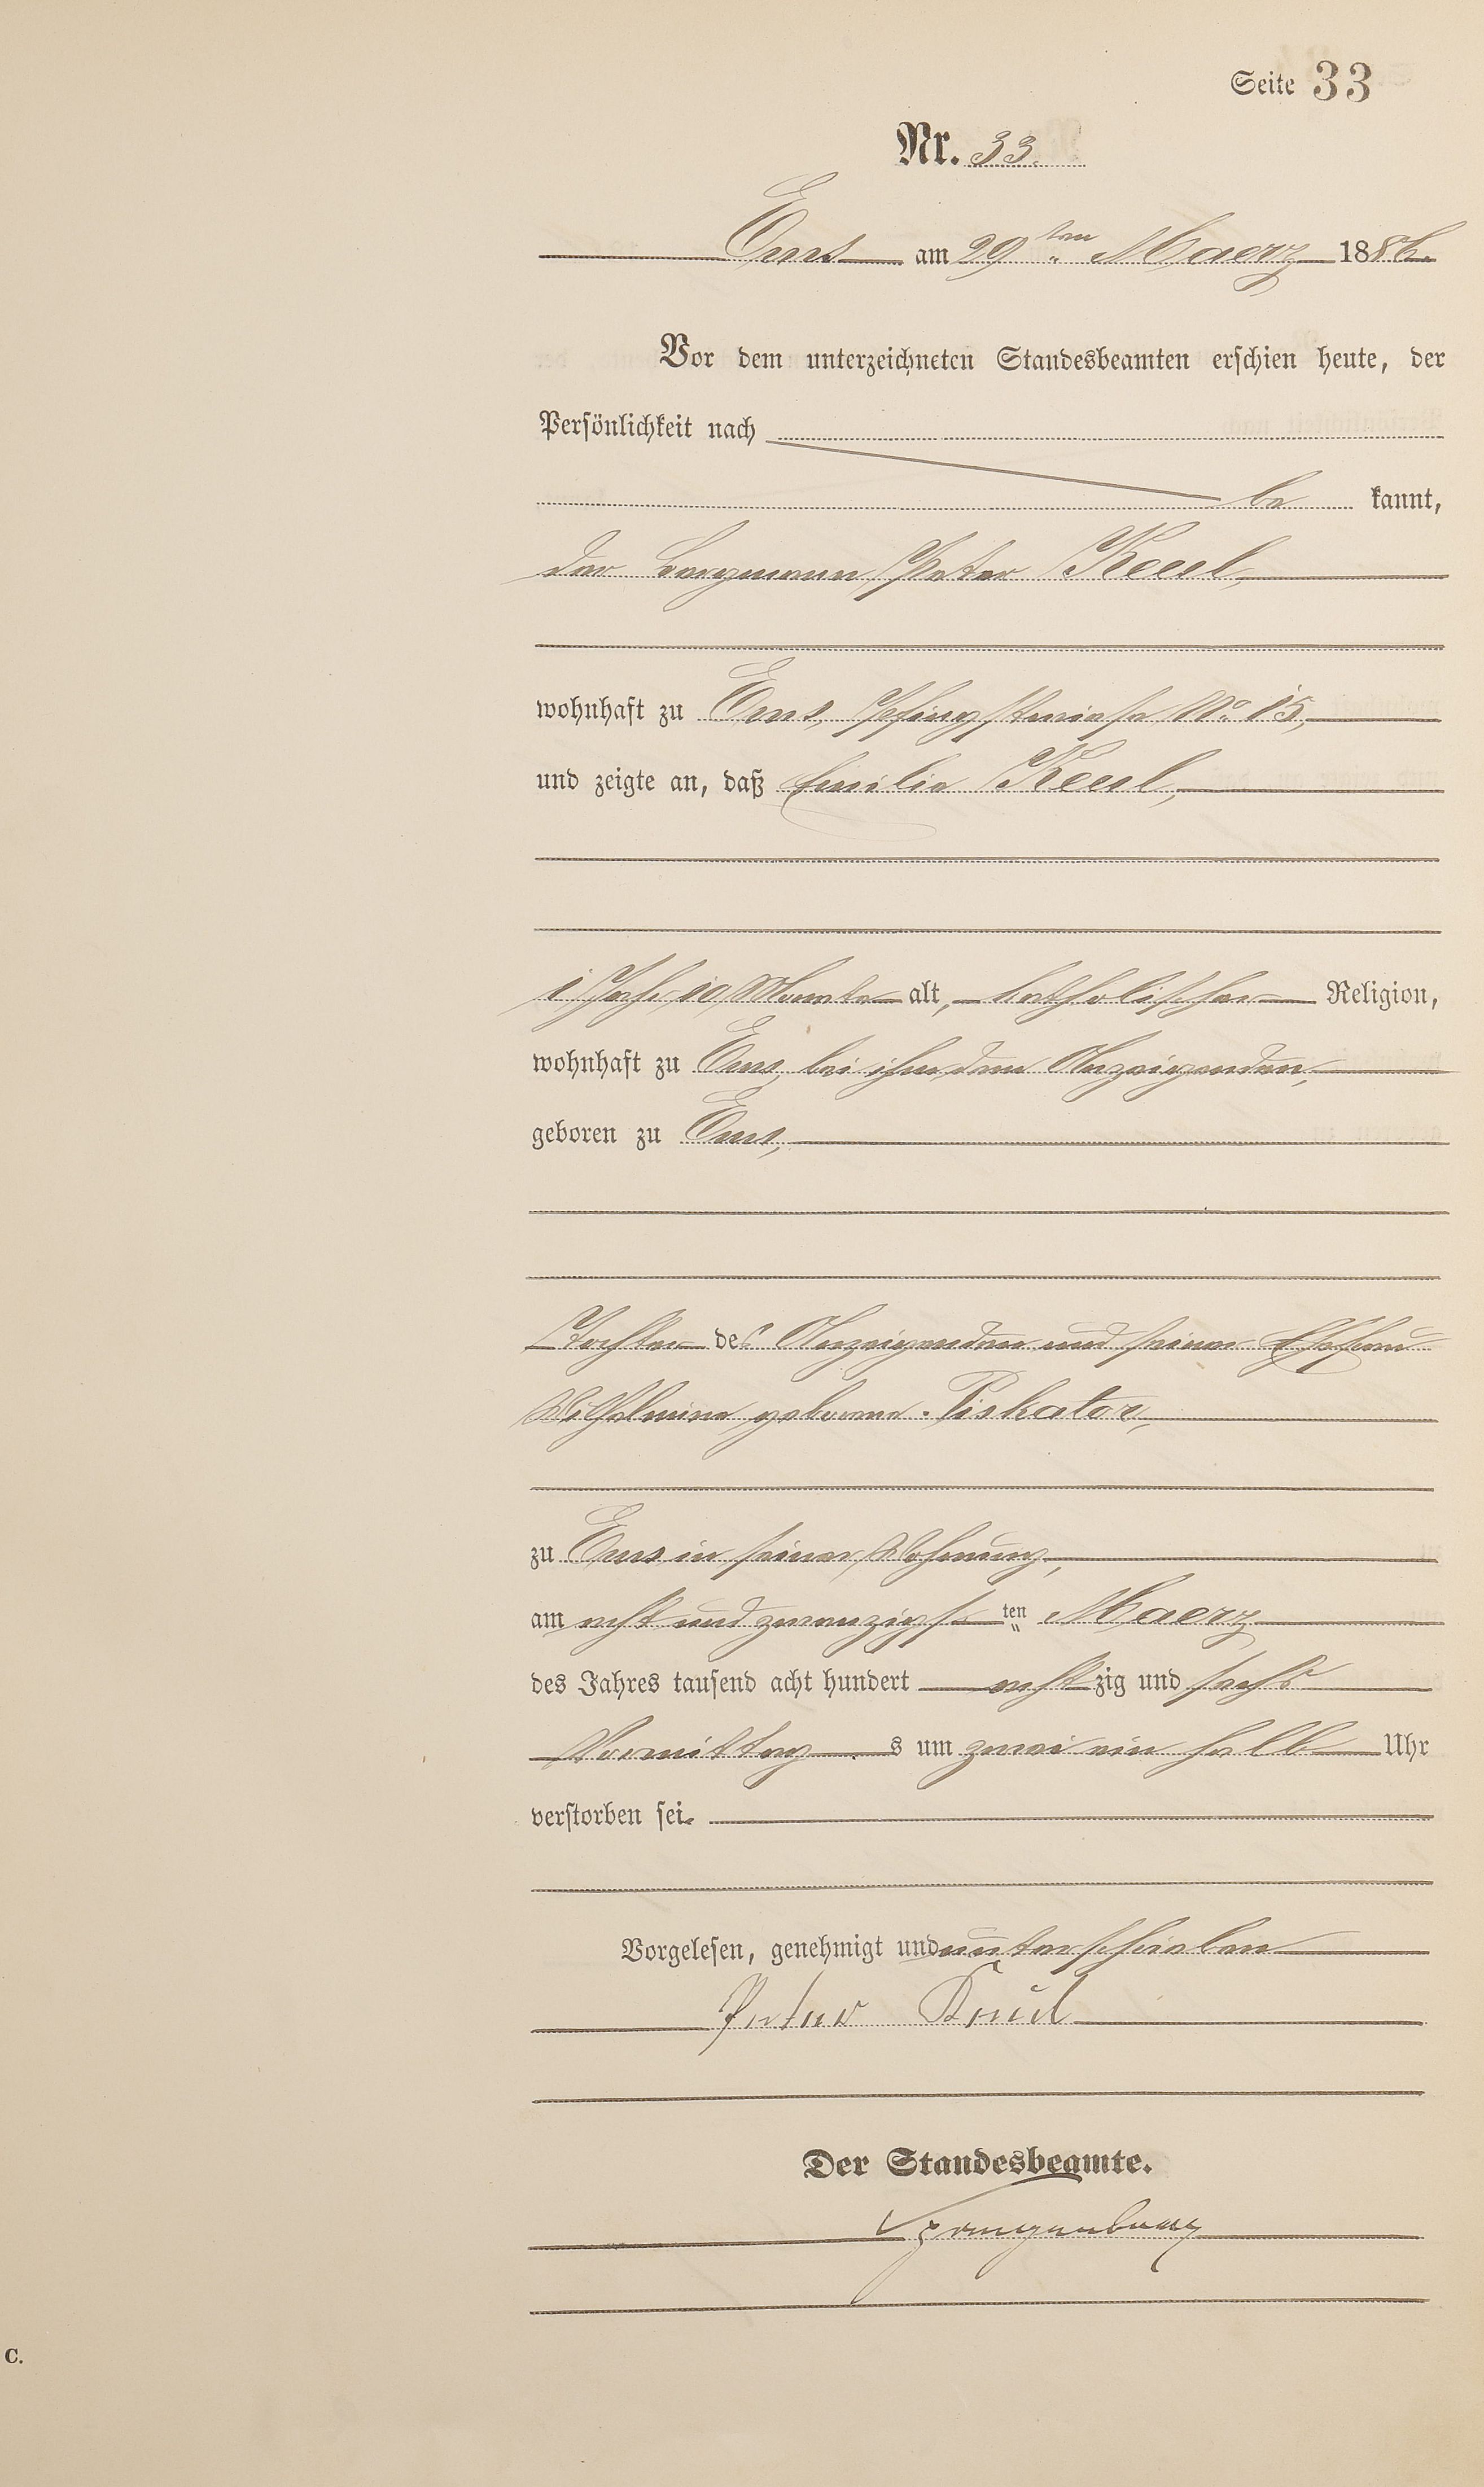 Seite 33
Nr. 33.
Ems am 29ten Maerz 1886.
Vor dem unterzeichneten Standesbeamten erschien heute, der
Persönlichkeit nach
be kannt,
der Bergmann Peter
wohnhaft zu Ems, Pfingstwiese No. 15,
und zeigte an, daß Emilie
1 Jahr 10 Monate alt, katholischer Religion,
wohnhaft zu Ems, bei ihm dem Anzeigenden,
geboren zu Ems,
Tochter des Anzeigenden und seiner Ehefrau
Wilhelmine geborene Piskator,
zu Ems in seiner Wohnung,
am acht und zwanzigsten Maerz
des Jahres tausend acht hundert achtzig und sechs
Vormittags um zwei ein halb Uhr
verstorben sei.
Vorgelesen, genehmigt und unterschrieben
Peter
Der Standesbeamte.
C.